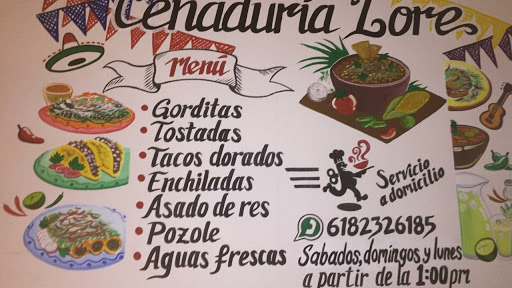 Cenaduría Lore
Menú
• Gorditas
• Tostadas
• Tacos dorados
• Enchiladas
• Asado de res
• Pozole
• Aguas frescas
Servicio
a domicilio
6182326185
Sabados, domingos y lunes
a partir de la 1:00pm